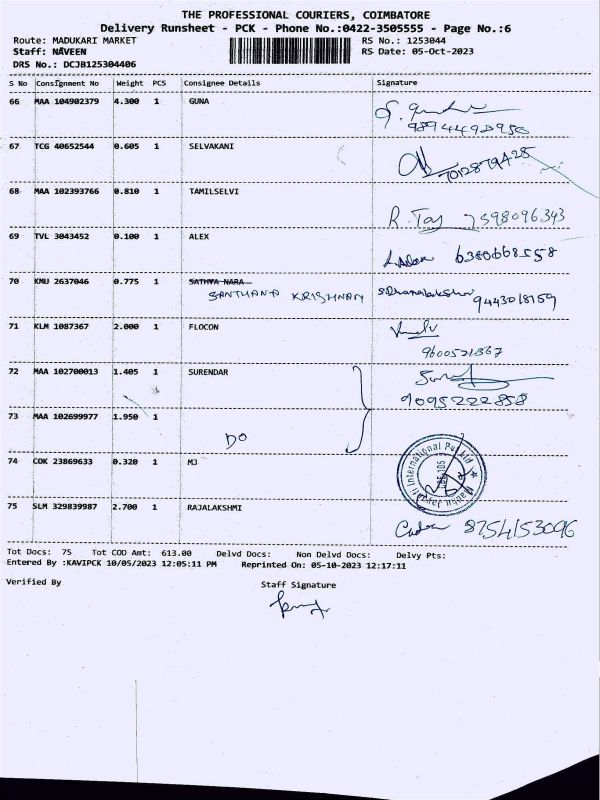 THE PROFESSIONAL COURIERS, COIMBATORE
Delivery Runsheet - PCK - Phone No.:0422-3505555 - Page No.:6
Route: MADUKARI MARKET RS No.: 1253044
Staff: NAVEEN RS Date: 05-Oct-2023
DRS No.: DCJB125304406
S No Consignment No Weight PCS Consignee Details Signature
66 MAA 104902379 4.300 1 GUNA
67 TCG 40652544 0.605 1 SELVAKANI
68 MAA 102393766 0.810 1 TAMILSELVI
R. Taj 7598096343
69 TVL 3043452 0.100 1 ALEX
6380668558
70 KMU 2637046 0.775 1 SATHYA NARA
SANTHANA KRISHNAN 9443018159
71 KLM 1087367 2.000 1 FLOCON
9600521867
72 MAA 102700013 1.405 1 SURENDAR
9095222858
73 MAA 102699977 1.950 1
DO
74 COK 23869633 0.320 1 MJ
International Pvt Ltd
75 SLM 329839987 2.700 1 RAJALAKSHMI
8754153096
Tot Docs: 75 Tot COD Amt: 613.00 Delvd Docs: Non Delvd Docs: Delvy Pts:
Entered By :KAVIPCK 10/05/2023 12:05:11 PM Reprinted On: 05-10-2023 12:17:11
Verified By Staff Signature